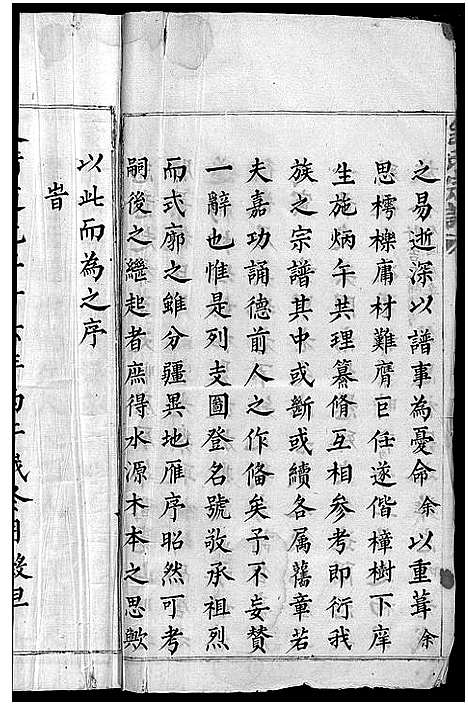 之易逝深以譜事為憂命余以重葺余
思樗櫟庸材難膺巨任遂偕樟樹下庠
生施炳午共理纂脩互相參考即衍我
族之宗譜其中或斷或續各属舊章若
夫嘉功誦德前人之作備矣予不妄贊
一辭也惟是列支圖登名號敬承祖烈
而式廓之雖分疆異地雁序昭然可考
嗣後之繼起者庶得水源木本之思歟
以此而為之序
旹
年丙午歲
月穀旦